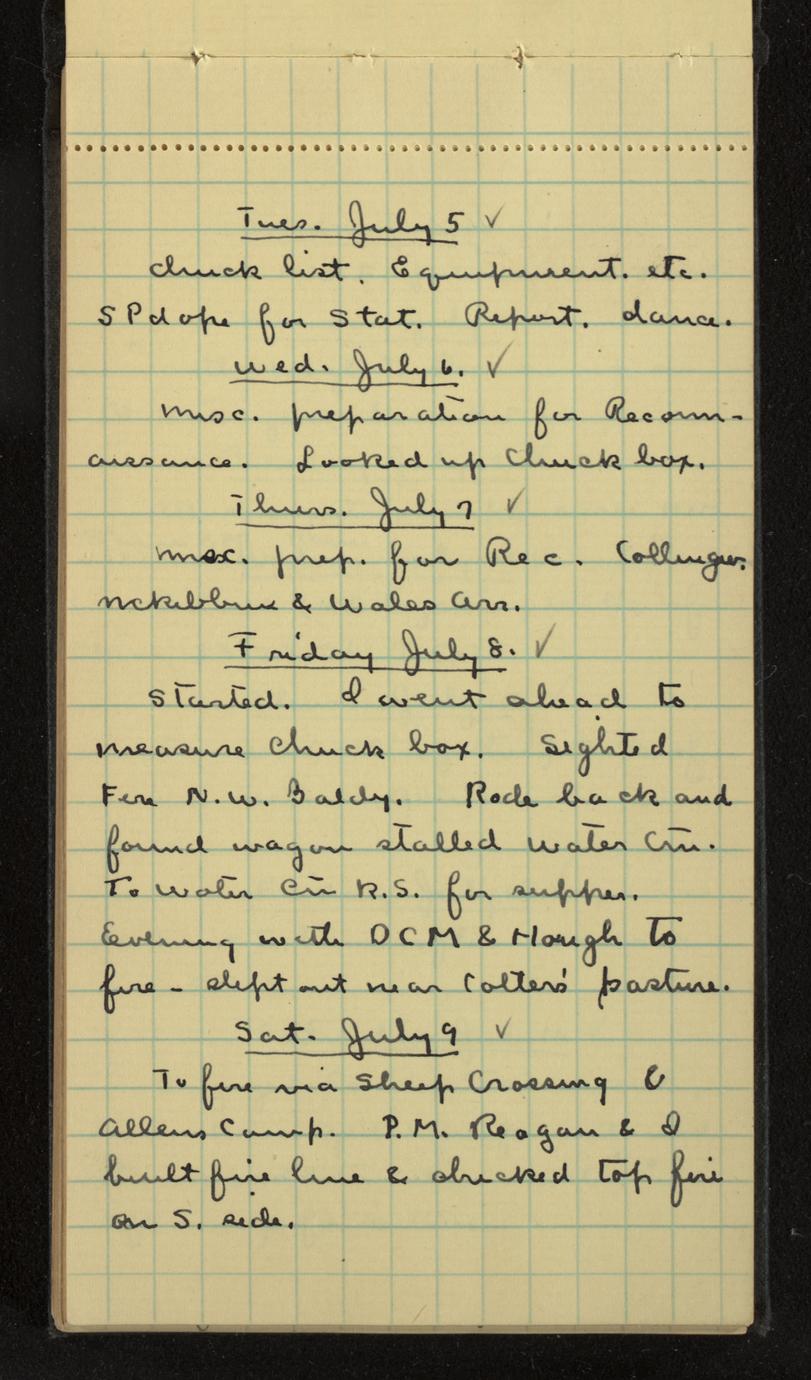 Tues. July 5 ✓
Chuck list. Equipment. etc.
S P dope for Stat. Report. dance.
Wed. July 6. ✓
Misc. preparation for Reconn-
aissance. Looked up Chuck box.
Thurs. July 7 ✓
prep. for Rec.
McKibbin & Wales Arr.
Friday July 8. ✓
Started. I went ahead to
measure Chuck box. Sighted
Fire N.W. Baldy. Rode back and
found wagon stalled Water Cñ.
To Water Cñ R.S. for supper.
Evening with DCM & Hough to
fire - slept out near Colters' pasture.
Sat. July 9 ✓
To fire via Sheep Crossing &
Allens Camp. P.M. Reagan & I
built fire line & checked top fire
on S. side.